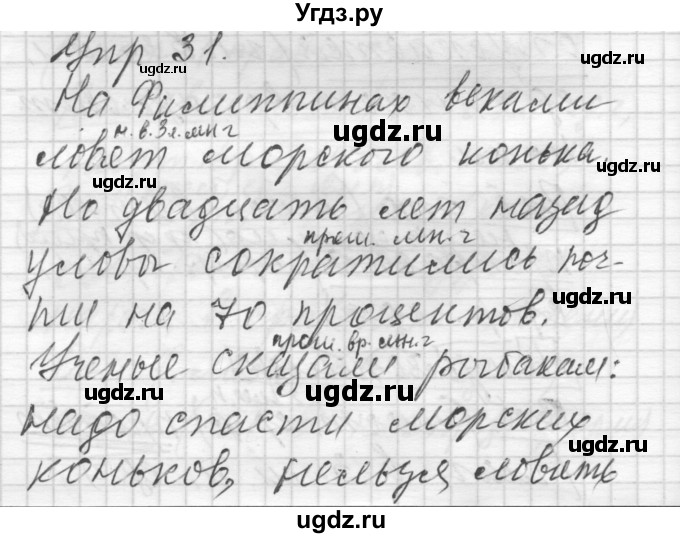 Угдз.ру
Упр 31.
ugdz.ru
ugdz.ru
На Филиппинах веками
н.в. 3 л. мн ч
ugdz.ru
ловят морского конька.
ugdz.ru
ugdz.ru
Но двадцать лет назад
ugdz.ru
прош. мн. ч
уловы сократились поч-
ugdz.ru
ти на 70 процентов.
ugdz.ru
ugdz.ru
прош. вр. мн. ч
Ученые сказали рыбакам:
ugdz.ru
ugdz.ru
надо спасти морских
ugdz.ru
коньков, нельзя ловить
ugdz.ru
ugdz.ru